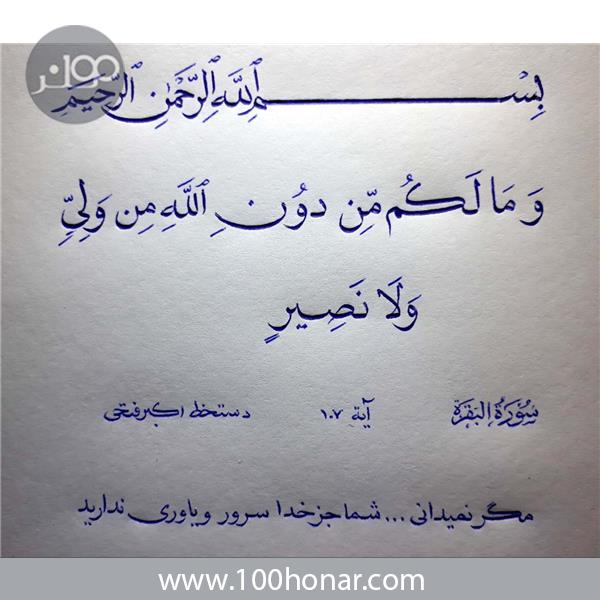 100هنر
بِسْمِ ٱللَّهِ ٱلرَّحْمَٰنِ ٱلرَّحِيمِ
وَ مَا لَكُم مِّن دُونِ ٱللَّهِ مِن وَلِيٍّ
وَلَا نَصِيرٍ
سُورَةُ البَقَرَة آية ۱۰۷ دستخط اکبر فتحی
مگر نمیدانی ... شما جز خدا سرور و یاوری ندارید
www.100honar.com